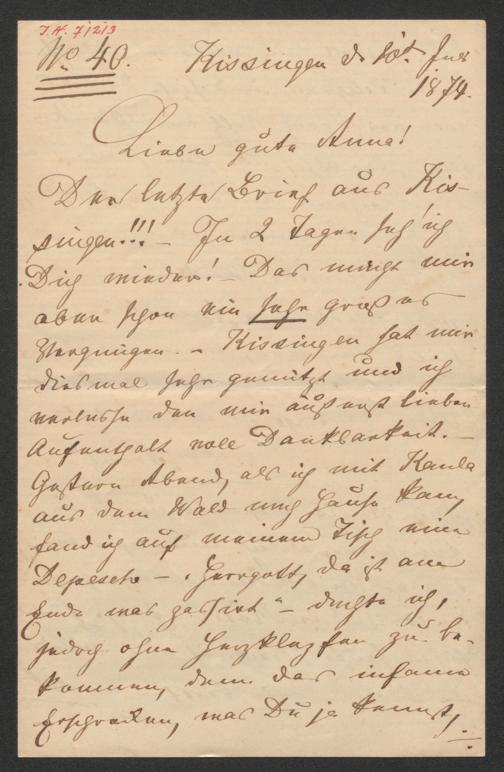 I.N. 71213
No 40.
Kissingen d 10t. Juni
1874.
Liebe gute Anna!
Der letzte Brief aus Kis-
singen!!! – In 2 Tagen seh' ich
Dich wieder! – Das macht mir
aber schon ein sehr großes
Vergnügen. – Kissingen hat mir
diesmal sehr genützt und ich
verlasse den mir äußerst lieben
Aufenthalt voll Dankbarkeit. –
Gestern Abend, als ich mit Kaula
aus dem Wald nach Hause kam,
fand ich auf meinem Tisch eine
Depesche – „Herrgott, da ist am
Ende was passirt" – dachte ich,
jedoch ohne Herzklopfen zu be-
kommen, denn das infame
Erschrecken, was Du ja kennst,